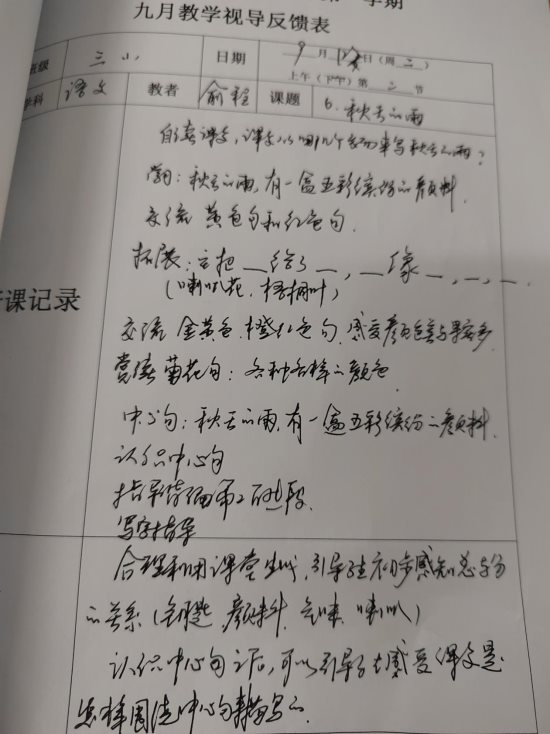 学期
九月教学视导反馈表
班级 三(1) 日期 9月 日(周二)
上午(下午)第二节
学科 语文 教者 俞程 课题 6.秋天的雨
自读课文,课文从哪几个方面来写秋天的雨?
学习:秋天的雨,有一盒五彩缤纷的颜料.
交流 黄色句和红色句.
拓展:它把__给了__,__像__,__,__.
(喇叭花、梧桐叶)
听课记录
交流 金黄色、橙红色句,感受颜色美与果实多
赏读菊花句:各种各样的颜色.
中心句:秋天的雨,有一盒五彩缤纷的颜料.
认识中心句
指导背诵第2自然段.
写字指导
合理利用课堂生成,引导学生初步感知总与分
的关系(钥匙、颜料、气味、喇叭)
认识中心句之后,可以引导学生感受课文是
怎样围绕中心句来描写的.